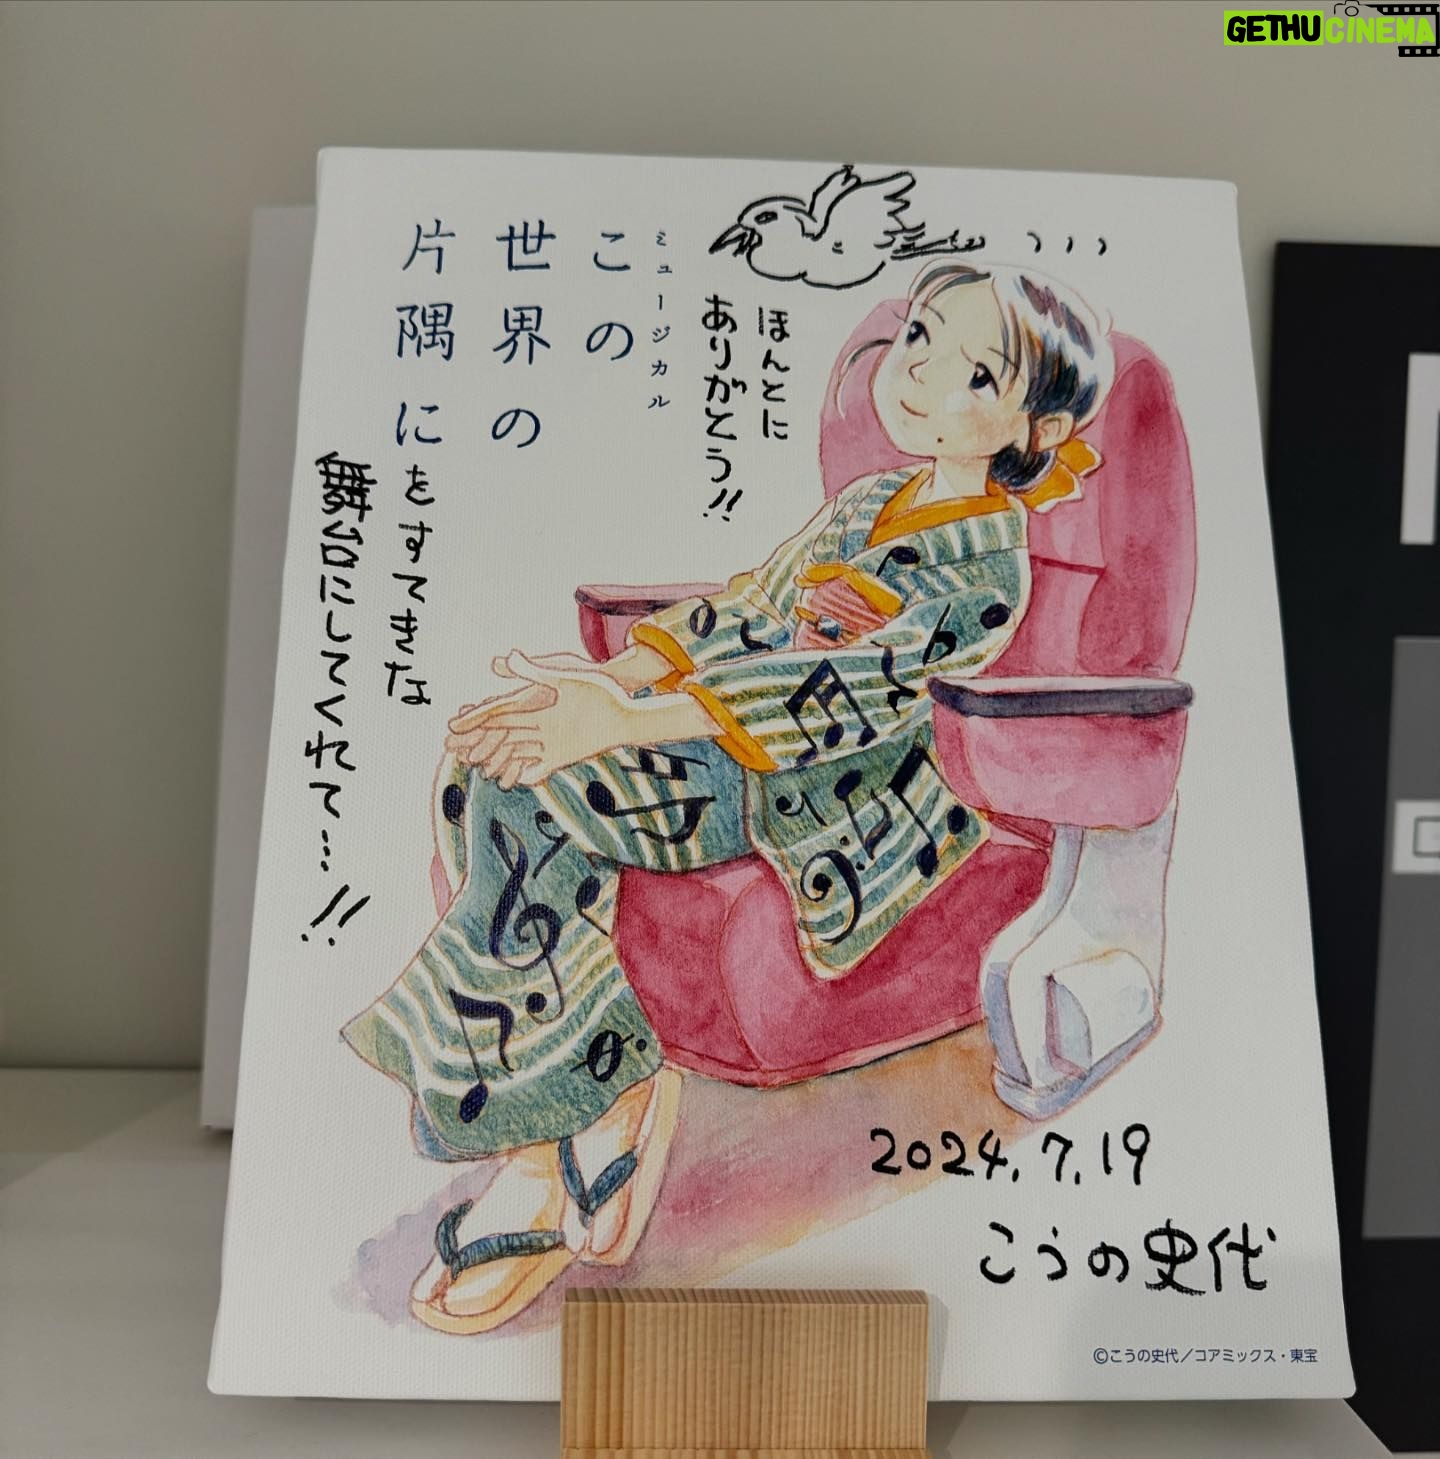 GETHUCINEMA
ミュージカル
この
世界の
片隅に
をすてきな
舞台にしてくれて…!!
ほんとに
ありがとう!!
2024.7.19
こうの史代
©こうの史代／コアミックス・東宝